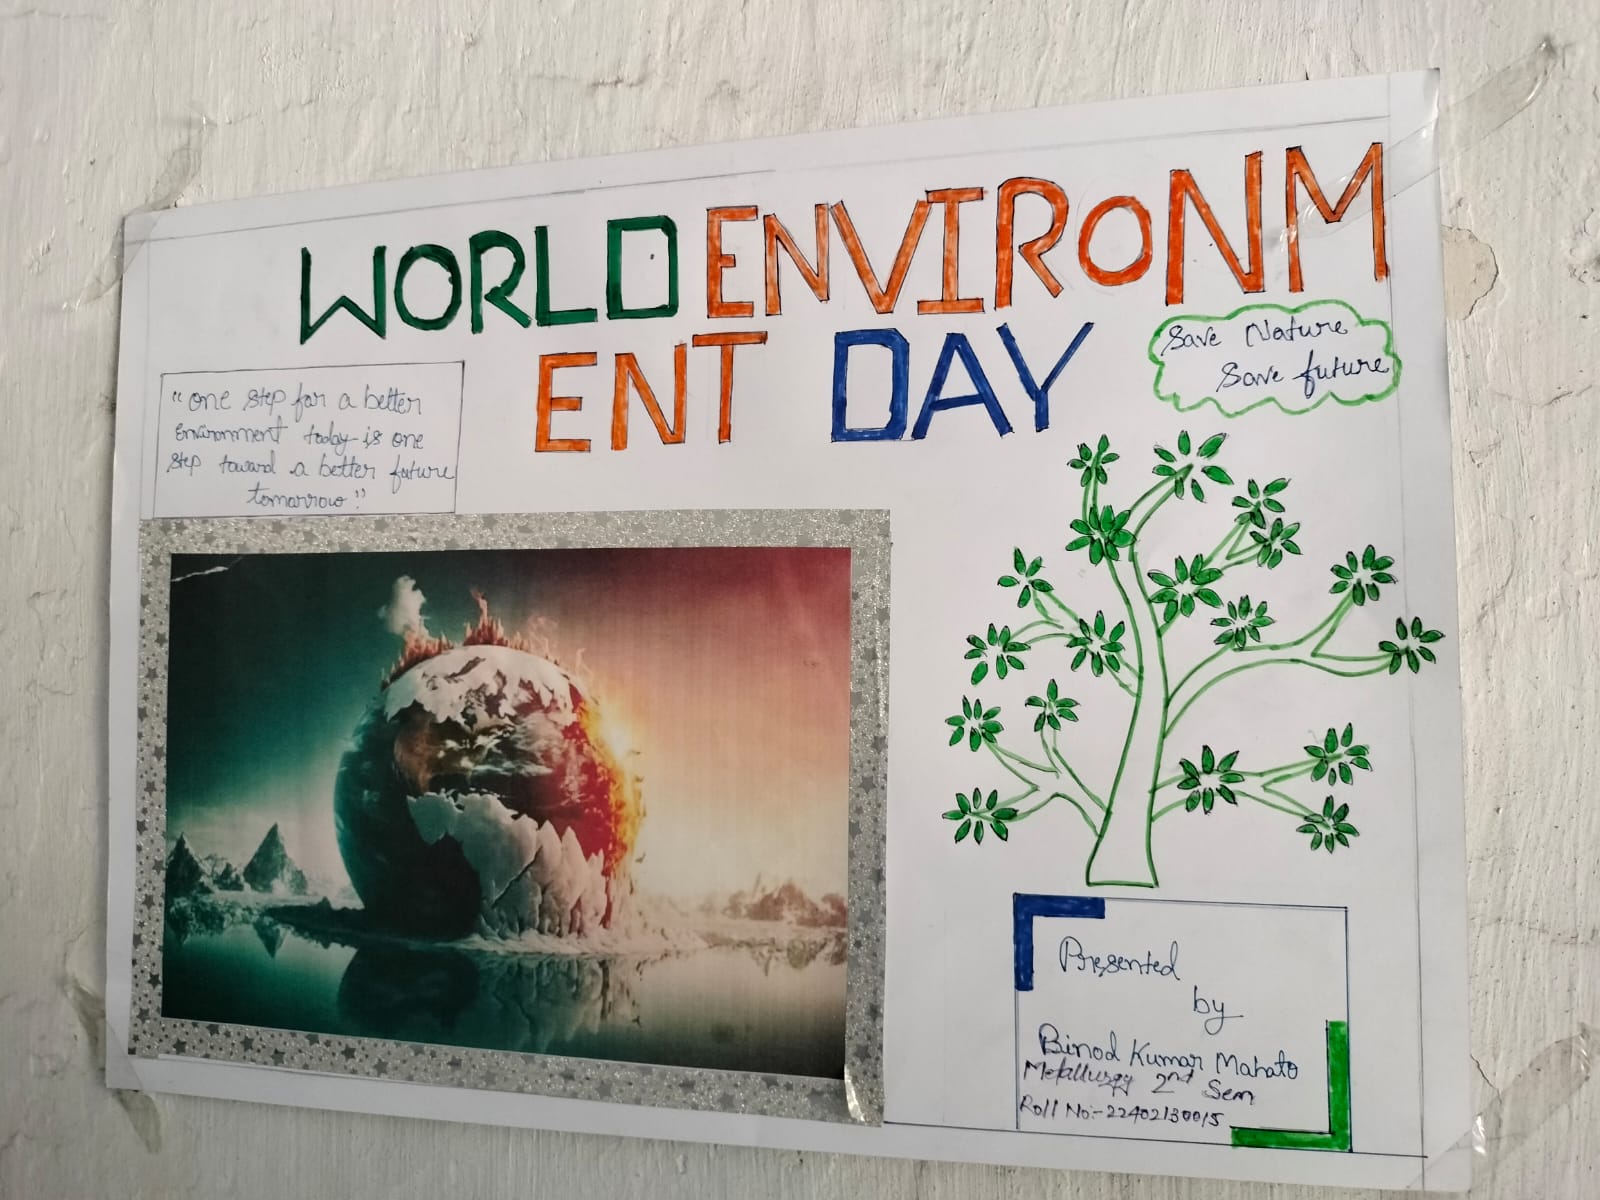 WORLD ENVIRONM
ENT DAY
Save Nature
Save future
"one step for a better
environment today is one
step toward a better future
tomarrow"
Presented
by
Binod Kumar Mahato
Metallurgy 2nd Sem
Roll No:-22402130015